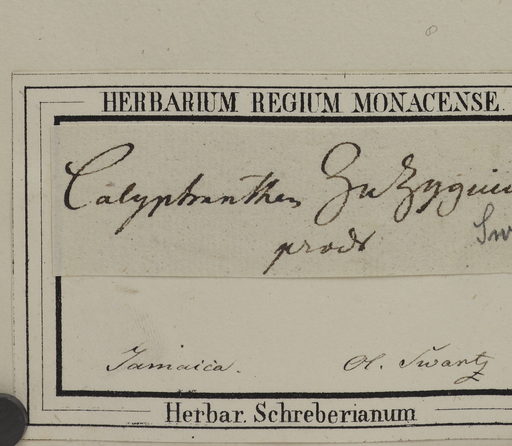 HERBARIUM REGIUM MONACENSE.
Calyptranthes Zuzygium
prodr
Sw
Jamaica. Ol. Swartz
Herbar. Schreberianum